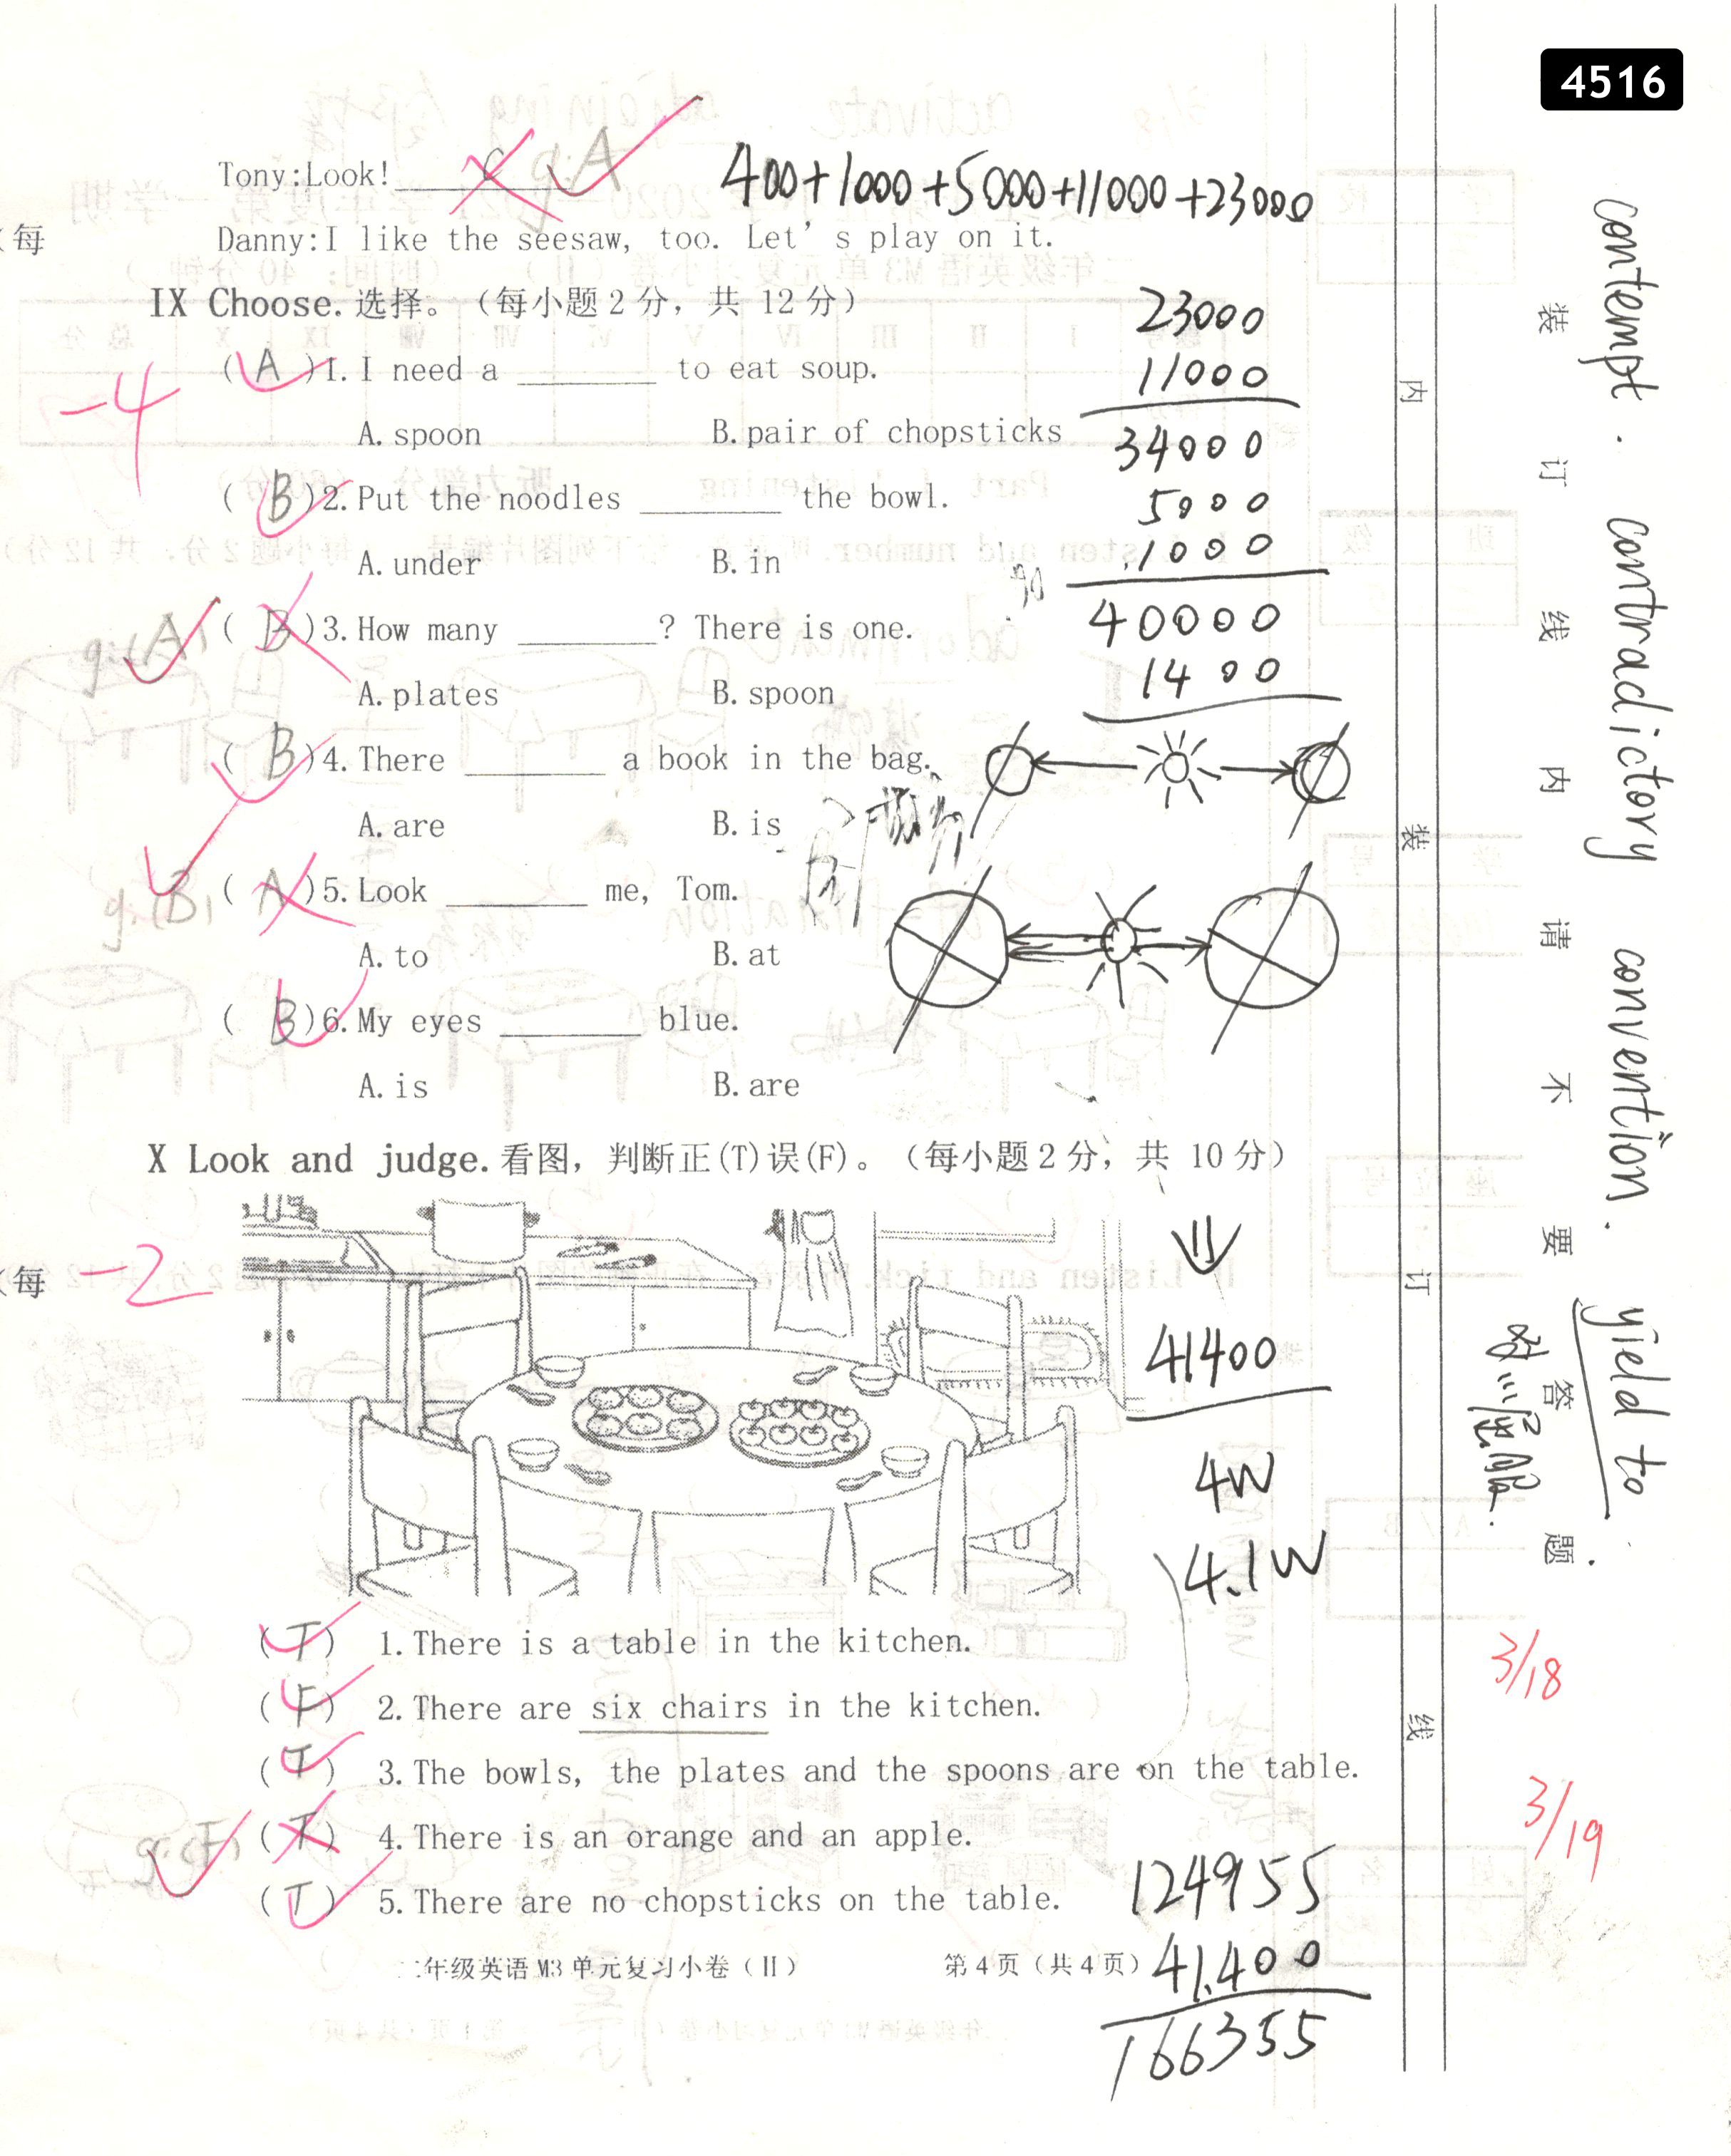 4516
Tony:Look! C g:A
400+1000+5000+11000+23000
(每
Danny:I like the seesaw, too. Let's play on it.
IX Choose.选择。(每小题2分,共 12分)
-4
(A)1.I need a ______ to eat soup.
A.spoon B.pair of chopsticks
(B)2.Put the noodles ______ the bowl.
A.under B.in
g:(A) (B)3.How many ______? There is one.
A.plates B.spoon
(B)4.There ______ a book in the bag.
A.are B.is
g:(B) (A)5.Look ______ me, Tom.
A.to B.at
(B)6.My eyes ______ blue.
A.is B.are
23000
11000
34000
5000
1000
40000
1400
X Look and judge.看图,判断正(T)误(F)。(每小题2分,共 10分)
(每 -2
41400
4W
4.1W
(T) 1.There is a table in the kitchen.
(F) 2.There are six chairs in the kitchen.
(T) 3.The bowls, the plates and the spoons are on the table.
g:(F) (T) 4.There is an orange and an apple.
(T) 5.There are no chopsticks on the table.
124955
41.400
166355
二年级英语M3单元复习小卷(II) 第4页(共4页)
内 装 订 线
装 订 线 内 请 不 要 答 题
contempt. contradictory convention.
yield to
屈服
3/18
3/19